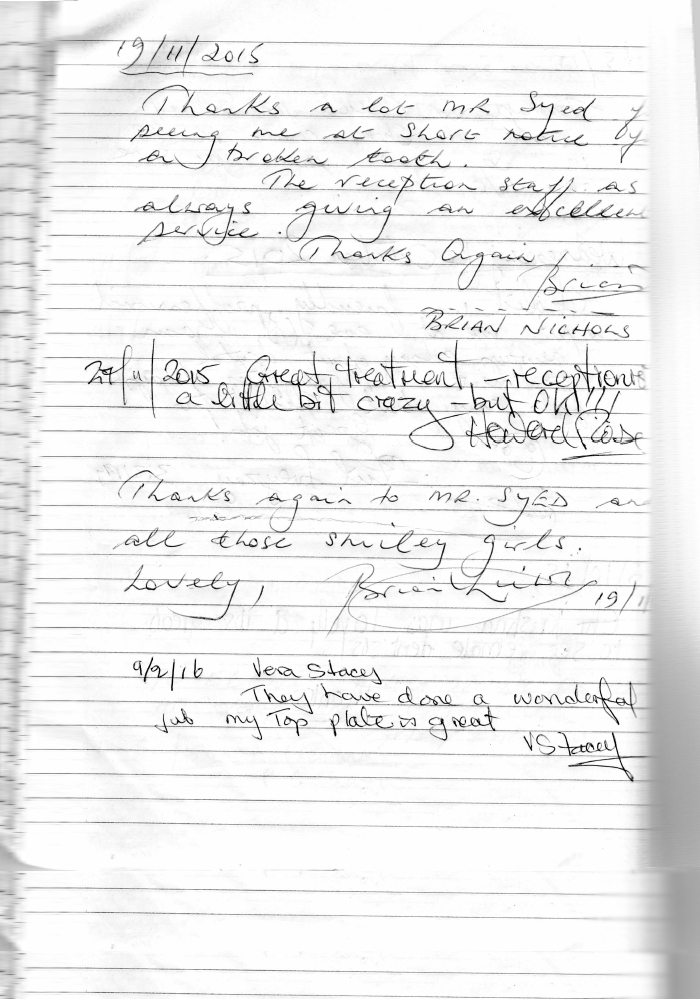 19/11/2015
Thanks a lot MR Syed
seeing me at short notice by
on broken tooth.
The reception staff as
always giving an excellen
service.
Thanks Again
Brian
BRIAN NICHOLS
27/11/2015 Great treatment – receptionis
a little bit crazy – but OK!!!
Howard
Thanks again to MR. SYED an
all those smiley girls.
Lovely, Brian 19/11
9/2/16 Vera Stacey
They have done a wonderful
job my Top plate is great
VStacey